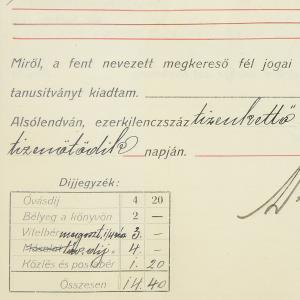 Miről, a fent nevezett megkereső fél jogai
tanusitványt kiadtam.
Alsólendván, ezerkilenczszáz tizenkettő
tizenötödik napján.
Díjjegyzék:
Óvásdíj 4 20
Bélyeg a könyvön 2 —
Vitelbér megoszt. 3. —
díj 4. —
Közlés és postabér 1. 20
Összesen 14. 40